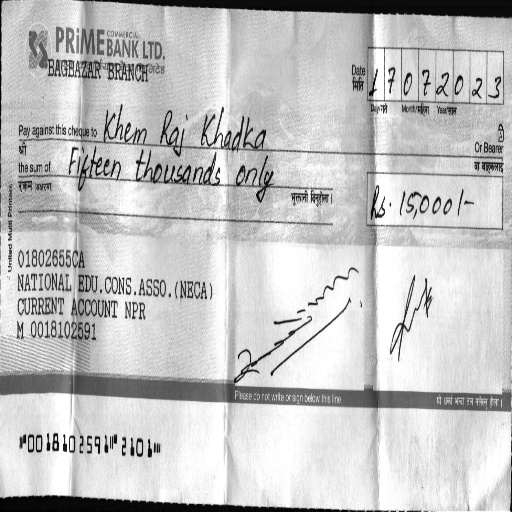 PRIME COMMERCIAL BANK LTD.
BAGBAZAR BRANCH
Date 17072023
मिति Day/गते Month/महिना Year/साल
Pay against this cheque to Khem Raj Khadka
श्री Or Bearer
वा वाहकलाई
the sum of Fifteen thousands only
Rs. 15,000/-
भुक्तानी दिनुहोला ।
United Multi Printers
01802655CA
NATIONAL EDU.CONS.ASSO.(NECA)
CURRENT ACCOUNT NPR
M 0018102591
Please do not write or sign below this line
⑈0018102591⑈2101⑈